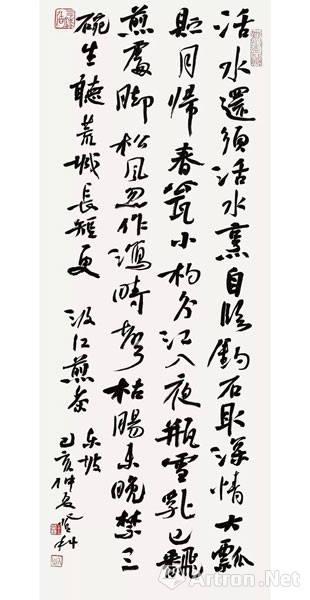 活水還須活水烹自臨釣石取深情大瓢
貯月歸春甕小杓分江入夜瓶雪乳已飜
煎處腳松風忽作瀉時聲枯腸未晚禁三
碗生聽荒城長短更 汲江煎茶 東坡
己亥仲夏登科
Artron.Net